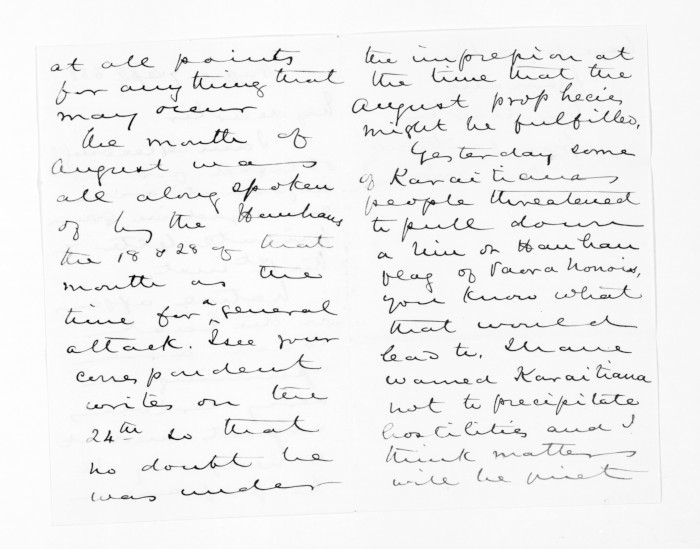 at all points
for anything that
may occur
The month of
August was
all along spoken
of by the Hauhaus
the 18 & 28 of that
month as the
time for a general
attack. I see your
correspondent
writes on the
24th so that
no doubt he
was under
the impression at
the time that the
August prophecies
might be fulfilled.
Yesterday some
of Karaitianas
people threatened
to pull down
a niu or Hauhau
flag of Paora
you know what
that would
lead to. I have
warned Karaitiana
not to precipitate
hostilities and I
think matters
will be quiet